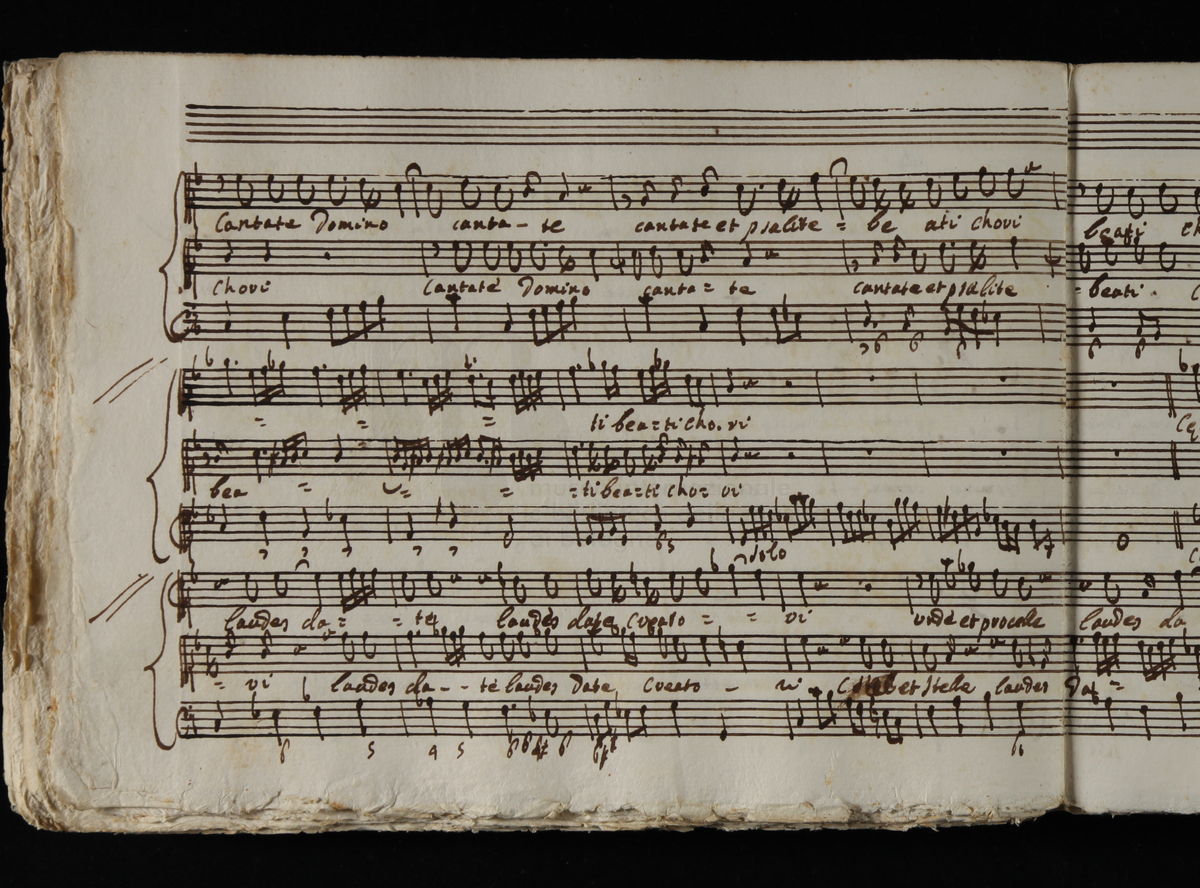 Cantate Domino canta - te cantate et psalite = be ati chori beati
chori Cantate Domino canta = te cantate et psalite = beati
6 6
= = = ti bea = ti cho. ri
bea = = = = ti bea = ti cho = ri
6 5
solo
laudes da = = te laudes date creato = = ri unde et procele laudes da
= ri laudes da - - te laudes date creato - ri et stele laudes da =
6 5 4 5 6 6 6